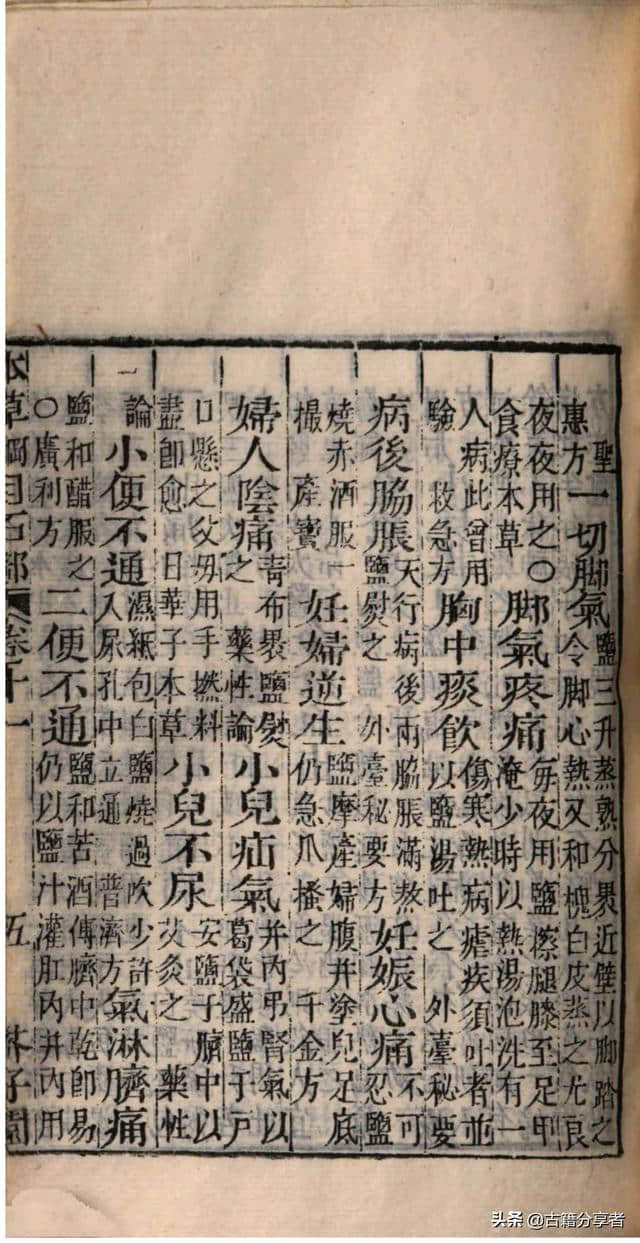 聖惠方一切脚氣鹽三升蒸熟分褁近壁以脚踏之令脚心熱又和槐白皮蒸之尤良
夜夜用之○食療本草脚氣疼痛每夜用鹽擦腿膝至足甲淹少時以熱湯泡洗有一
人病此曾用驗 救急方胸中痰飲傷寒熱病瘧疾須吐者並以鹽湯吐之 外臺秘要
病後脇脹天行病後兩脇脹滿熬鹽熨之 外臺秘要方妊娠心痛不可忍鹽
燒赤酒服一撮 產寳妊婦逆生鹽摩產婦腹并塗兒足底仍急爪搔之 千金方
婦人陰痛青布褁鹽熨之 藥性論小兒疝氣并內弔腎氣以葛袋盛鹽于戸
口懸之父母用手撚料盡卽愈 日華子本草小兒不尿安鹽于臍中以艾灸之 藥性
論小便不通濕紙包白鹽燒過吹少許入尿孔中立通 普濟方氣淋臍痛
鹽和醋服之○廣利方二便不通鹽和苦酒傅臍中乾卽易仍以鹽汁灌肛內并內用
本草綱目石部 卷十一 五 芥子園
头条 @古籍分享者